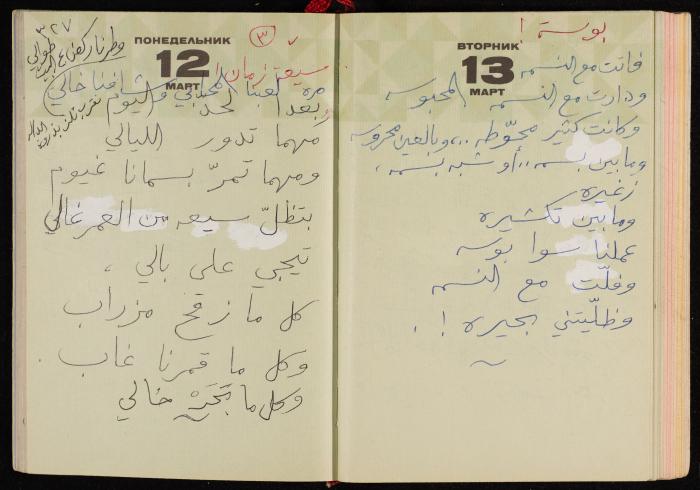 ٣٢٧
ПОНЕДЕЛЬНИК
12
МАРТ
٣
زمان
مرة لعبنا
بعدا لحد اليوم
مهما تدور الليالي
ومهما تمرّ بسمانا غيوم
بتظلّ سيعه من العمر غالي
تيجي على بالي ،
كل ما زقح مزراب
وكل ما قمرنا غاب .
وكل ما بَحَيّرْ خالي
ВТОРНИК
13
МАРТ
بوسة !
فاتت مع النسمه
ودارت مع النسمه المحبوسه
وكانت كثير محوّطه ،، وبالعين محروسه
وما بين بسمه ،، أو شبه بسمه ،
زغيره
وما بين تكشيره
عملنا سوا بوسه
وفلّت مع النسمه
وظلّيتني بحيره ! .